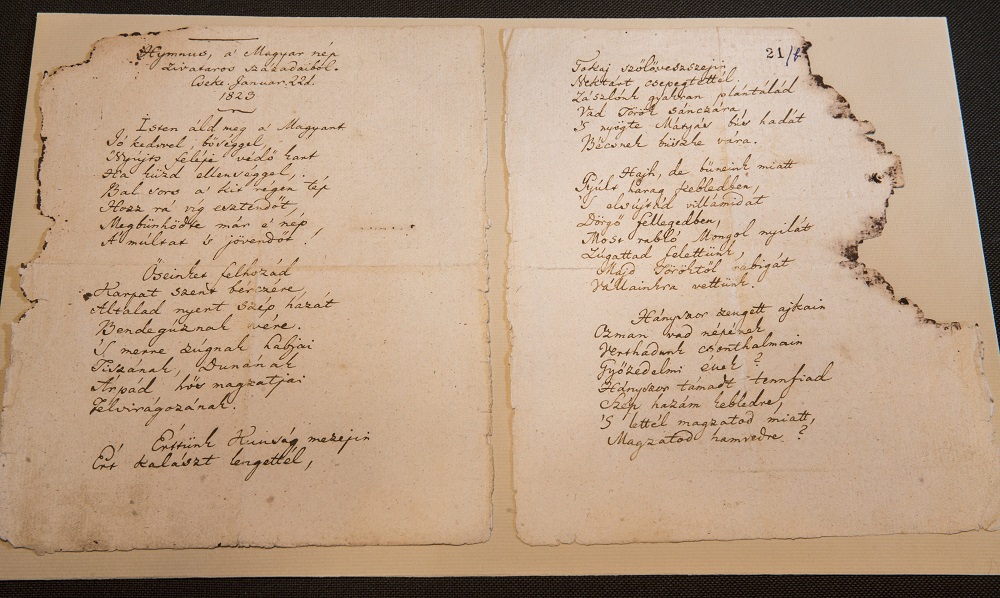 Hymnus, a' Magyar nép
zivataros századaiból.
Cseke. Januar. 22d.
1823
Isten áld meg a' Magyart
Jó kedvvel, bőséggel,
Nyújts feléje védő kart
Ha küzd ellenséggel,
Bal sors a' kit régen tép
Hozz rá víg esztendőt,
Megbünhödte már e' nép
A' multat 's jövendőt!
Őseinket felhozád
Karpat szent bérczére,
Általad nyert szép hazát
Bendegúznak vére.
'S merre zúgnak habjai
Tiszának, Dunának
Árpád hős magzatjai
Felvirágozának.
Értünk Kunság mezejin
Ért kalászt lengettél,
21/b
Tokaj szőlővesszejin
Nektárt csepegtettél.
Zászlónk gyakran plántálád
Vad Török sánczára,
'S nyögte Mátyás bús hadát
Bécsnek büszke vára.
Hajh, de bűneink miatt
Gyúlt harag kebledben,
'S elsújtád villámidat
Dörgő fellegedben,
Most rabló Mongol nyilát
Zúgattad felettünk,
Majd Töröktől rabigát
Vállainkra vettünk.
Hányszor zengett ajkain
Ozman vad népének
Vert hadunk csonthalmain
Győzedelmi ének?
Hányszor támadt tennfiad
Szép hazám kebledre,
'S lettél magzatod miatt,
Magzatod hamvvedre?